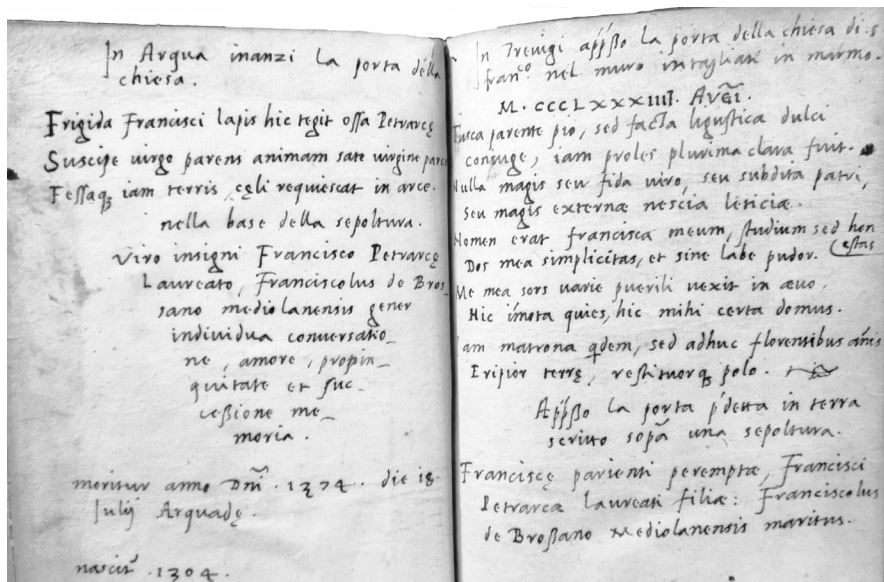 In Arqua inanzi la porta della
chiesa.
Frigida Francisci lapis hic tegit ossa Petrarcę
Suscipe virgo parens animam sate virgine parce
Fessaqꝫ iam terris, cęli requiescat in arce.
nella base della sepoltura.
Viro insigni Francisco Petrarcę
Laureato, Franciscolus de Bros_
sano mediolanensis gener
individua conversatio_
ne, amore, propin_
quitate et suc_
ceßione me_
moria.
moritur anno Dñi .1374. die 18
Julij Arquadę.
nascit᷑ .1304.
In Trevigi app̃ßo la porta della chiesa di .s
franc.º nel muro intagliati in marmo.
M. CCCLXXXIIII. AVG̃I.
Tusca parente pio, sed facta ligustica dulci
coniuge, iam proles plurima clara fuit.
Nulla magis seu fida viro, seu subdita patri,
Seu magis externæ nescia leticiæ.
Nomen erat francisca meum, studium sed hon
(estas
Dos mea simplicitas, et sine labe pudor.
Me mea sors varie puerili vexit in ævo,
Hic im̃ota quies, hic mihi certa domus.
Iam matrona q̃dem, sed adhuc florentibus añis
Eripior terrę, restituorqꝫ polo.
App̃ßo la porta p̃detta in terra
scritto sop̃a una sepoltura.
Franciscę parienti peremptæ, Francisci
Petrarcæ laureati filiæ: Franciscolus
de Broßano Mediolanensis maritus.